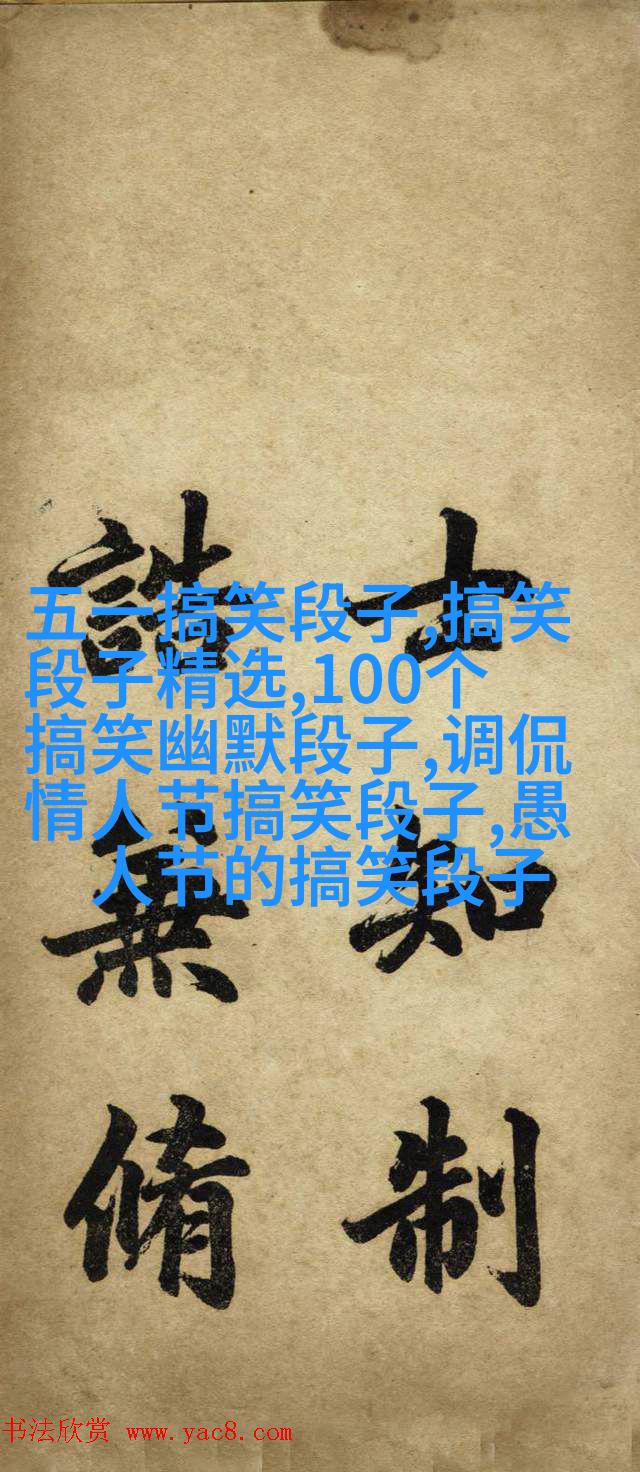 五一搞笑段子,搞笑
段子精选,100个
搞笑幽默段子,调侃
情人节搞笑段子,愚
人节的搞笑段子
士知制
誥無脩
书法欣赏 www.yac8.com